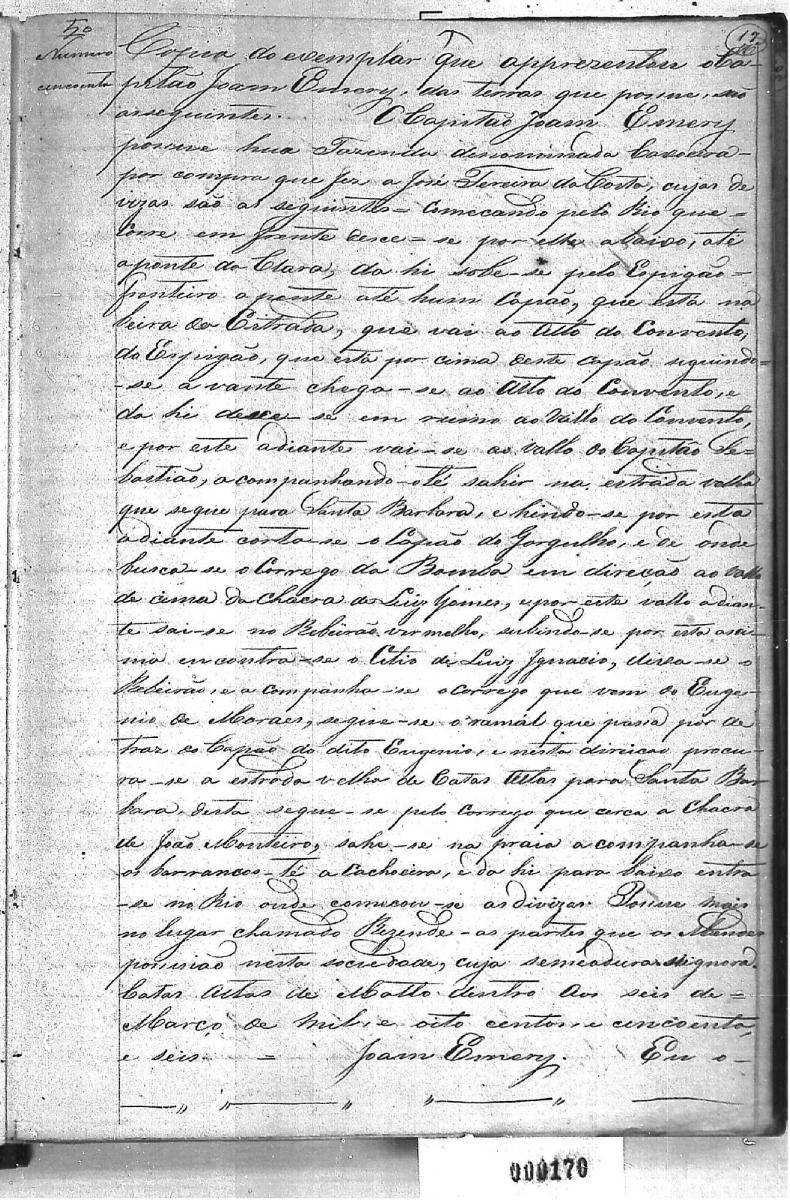 50
Numero
cincoenta
17
Copia do exemplar que apprezentou o Ca-
pitão Joam Emery, das terras que possue, são
as seguintes. O Capitão Joam Emery
possue hua Fazenda denominada Caxoeira-
por compra que fez a José Pereira da Costa, cujas de
vizas são as seguintes = Comecando pelo Rio que =
corre em frente desce-se por elle abaixo, até
a ponte do Clara, da hi sobe-se pelo Espigão =
fronteiro a ponte até hum Capão, que está na
beira da Estrada, que vai ao Alto do Convento,
do Espigão, que esta por cima deste capão seguindo=
-se a vante chega-se ao Alto do Convento, e
da hi desce-se em rumo ao Vallo do Convento,
e por este adiante vai-se ao Vallo do Capitão Se-
bastião, acompanhando-o té sahir na estrada velha
que segue para Santa Barbara, e hindo-se por esta
adiante corta-se o Capão do Gorgulho, e de onde
busca-se o Corrego da Bomba em direcao ao vallo
de cima da Chacra de Luiz Gomes, e por este vallo adian-
te sai-se no Ribeirão vermelho, subindo-se por esta asci-
ma encontra-se o Citio de Luiz Ignacio, dixa-se o
Ribeirão, e acompanha-se o corrego que vem do Euge-
nio de Moraes, segue-se o ramál que passa por de
traz do Capão do dito Eugenio, e nesta direicao procu-
ra-se a estrada velha de Catas Altas para Santa Bar
bara, desta segue-se pelo corrego que cerca a Chacra
de João Monteiro, sahe-se na praia acompanha-se
os barrancos té a Cachoeira, e da hi para baixo entra
-se no Rio onde comecou-se as divizas Possue mais
no lugar chamado Rezende - as partes que os Mendes
possuião nesta sociedade, cuja semeadura se ignora.
Catas Altas de Matto dentro Aos seis de =
Março de mil, e oito centos, e cincoenta,
e seis. = Joam Emery. Eu o-
000170